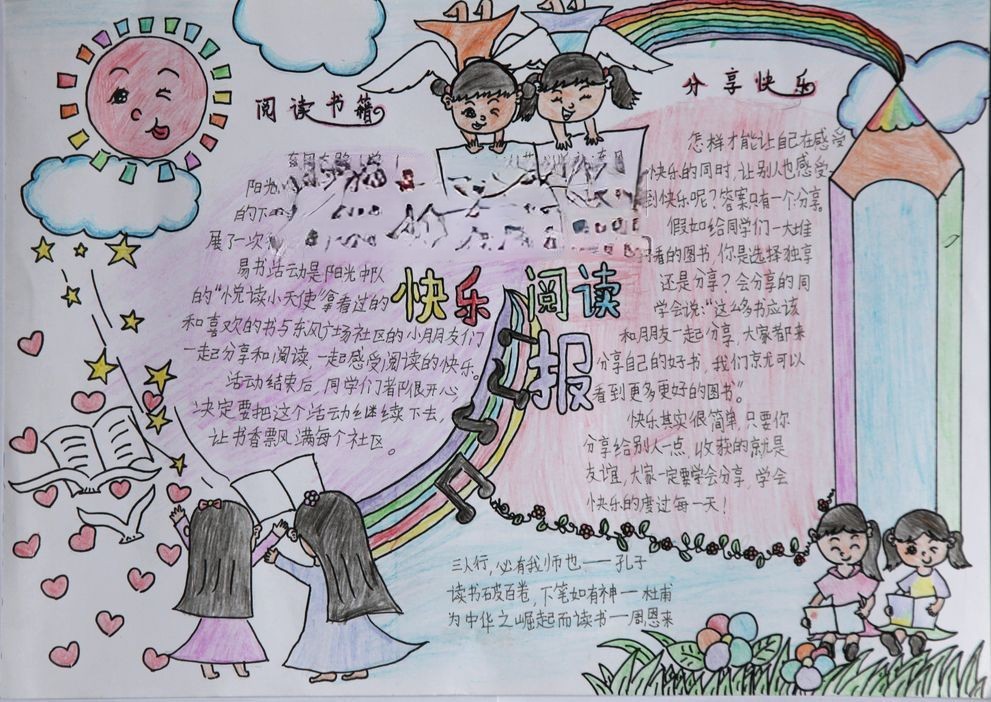 阅读书籍
阳光
的下
展了一次
易书活动是阳光中队
的“悦读小天使”拿看过的
和喜欢的书与东风广场社区的小朋友们
一起分享和阅读,一起感受阅读的快乐。
活动结束后,同学们都很开心
决定要把这个活动继续下去,
让书香飘风满每个社区。
快乐 阅读
报
分享快乐
怎样才能让自己在感受
快乐的同时,让别人也感受
到快乐呢?答案只有一个分享。
假如给同学们一大堆
好看的图书,你是选择独享
还是分享?会分享的同
学会说:“这么多书应该
和朋友一起分享,大家都来
分享自己的好书,我们就可以
看到更多更好的图书”。
快乐其实很简单,只要你
分享给别人一点,收获的就是
友谊,大家一定要学会分享,学会
快乐的度过每一天!
三人行,必有我师也——孔子
读书破百卷,下笔如有神一杜甫
为中华之崛起而读书一周恩来